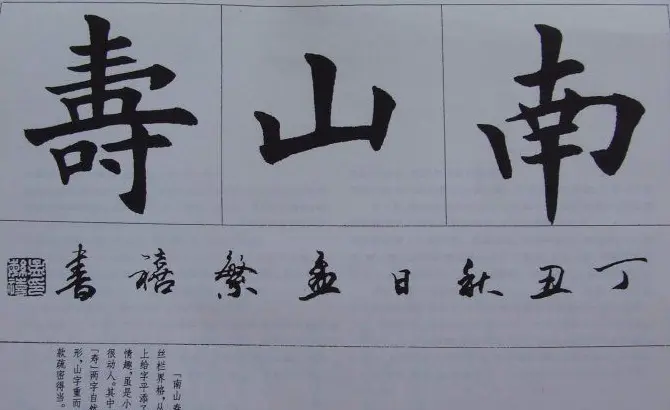 南山壽
丁丑秋日孟繁禧書
「南山寿
丝栏界格，从
上给字平添了
情趣，虽是小
很动人。其中
「寿」两字自然
形，山字重而
款疏密得当。